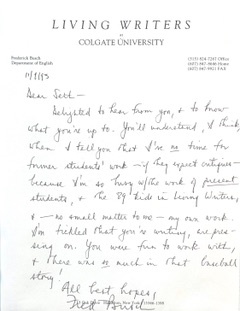 LIVING WRITERS
at
COLGATE UNIVERSITY
Frederick Busch
Department of English
(315) 824-7247 Office
FAX
Dear Seth-
Delighted to hear from you, & to know
what you're up to. You'll understand, I think,
when I tell you that I've no time for
former students' work - if they expect critiques -
because I'm so busy w/the work of present
students, & the 89 kids in Living Writers,
& - no small matter to me - my own work.
I'm tickled that you're writing, are pres-
sing on. You were fun to work with,
& there was so much in that baseball
story!
All best hopes,
Fred Busch